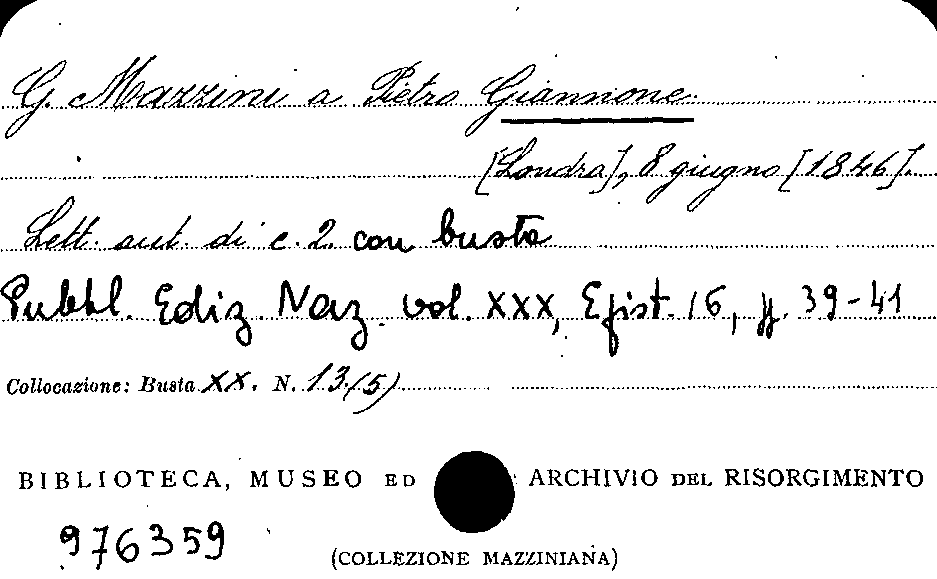 G. Mazzini a Pietro Giannone
[Londra], 8 giugno [1846].
Lett. aut. di c. 2. con busta
Pubbl. Ediz. Naz. vol. XXX, Epist. 16, p. 39-41
Collocazione: Busta XX. N. 13/5)
BIBLIOTECA, MUSEO ED ARCHIVIO DEL RISORGIMENTO
976359
(COLLEZIONE MAZZINIANA)